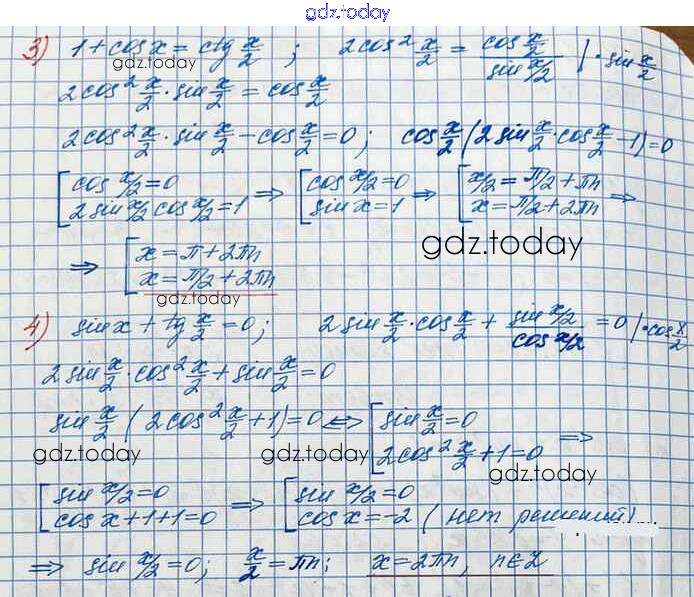 gdz.today
3) 1 + cos x = ctg x/2 ; 2cos² x/2 = cos x/2 / sin x/2 | · sin x/2
gdz.today
2cos² x/2 · sin x/2 = cos x/2
2cos² x/2 · sin x/2 − cos x/2 = 0; cos x/2 (2 sin x/2 · cos x/2 − 1) = 0
[ cos x/2 = 0 ⇒ [ cos x/2 = 0 ⇒ [ x/2 = π/2 + πn ⇒
2 sin x/2 cos x/2 = 1 sin x = 1 x = π/2 + 2πn
gdz.today
⇒ [ x = π + 2πn
x = π/2 + 2πn
gdz.today
4) sin x + tg x/2 = 0; 2 sin x/2 · cos x/2 + sin x/2 / cos x/2 = 0 | · cos x/2
2 sin x/2 · cos² x/2 + sin x/2 = 0
sin x/2 (2cos² x/2 + 1) = 0 ⇔ [ sin x/2 = 0
2cos² x/2 + 1 = 0 ⇒
gdz.today gdz.today gdz.today
[ sin x/2 = 0 ⇒ [ sin x/2 = 0
cos x + 1 + 1 = 0 cos x = −2 (нет решений)
⇒ sin x/2 = 0; x/2 = πn; x = 2πn, n∈Z